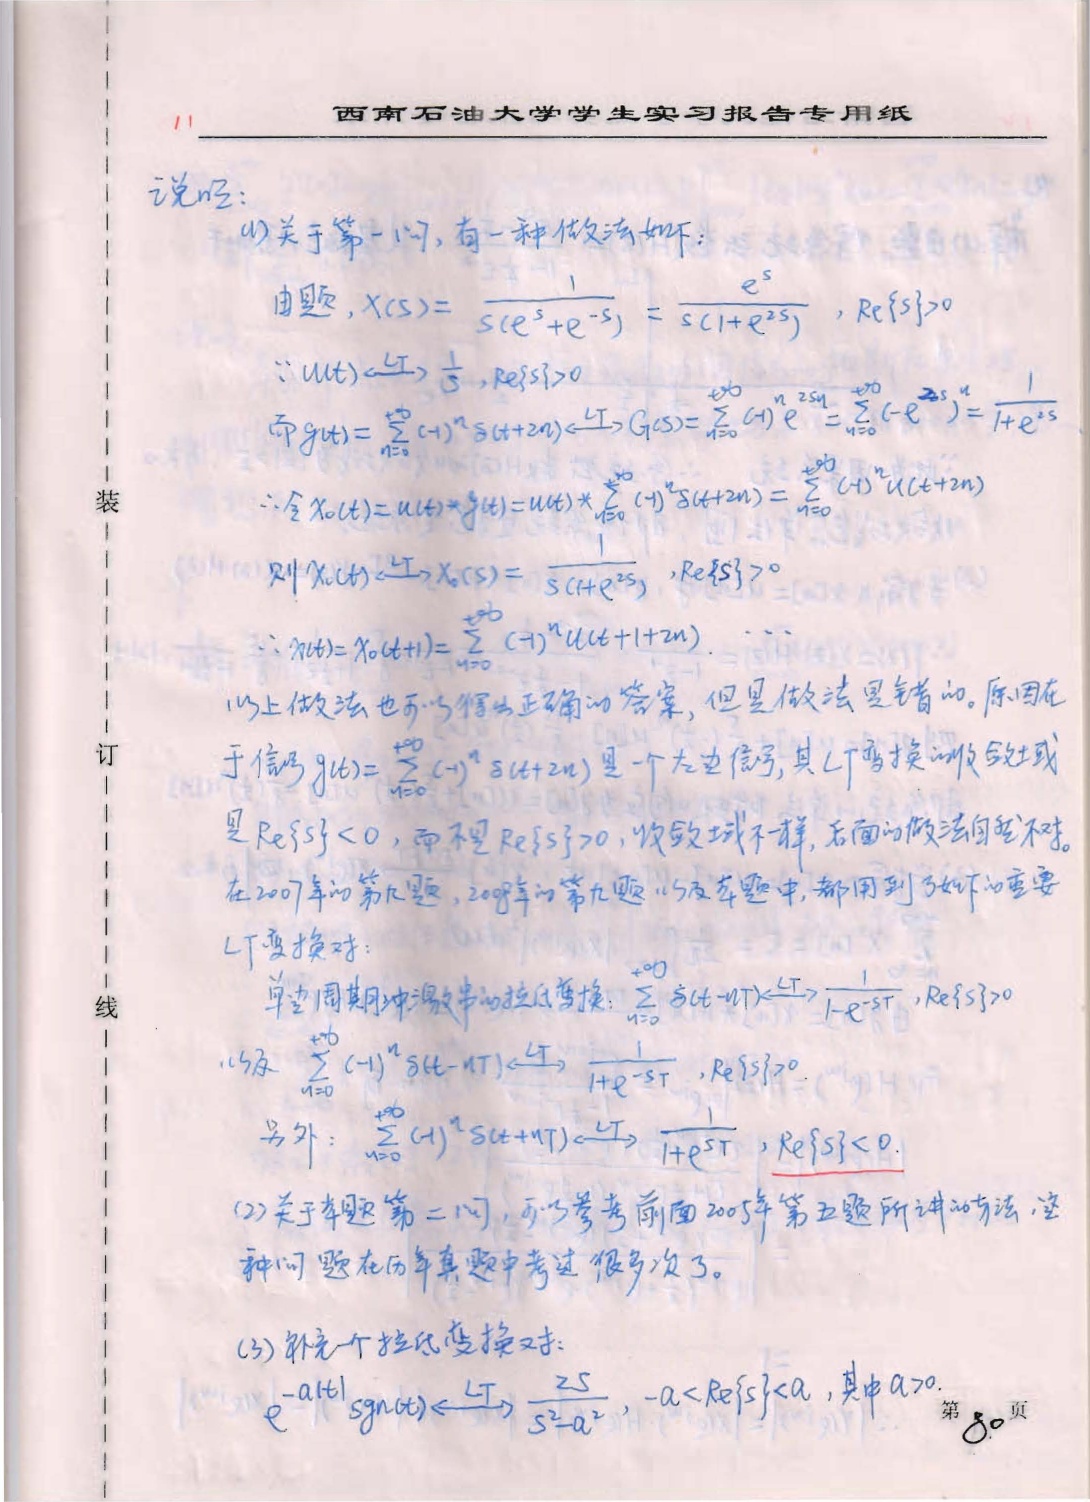 11
西南石油大学学生实习报告专用纸
说明:
(1)关于第一问,有一种做法如下:
由题,X(s)= 1/(s(e^s+e^-s)) = e^s/(s(1+e^2s)) , Re{s}>0
∵ u(t) <-LT-> 1/s , Re{s}>0
而g(t)= Σ_{n=0}^{+∞} (-1)^n δ(t+2n) <-LT-> G(s)= Σ_{n=0}^{+∞} (-1)^n e^{2sn} = Σ_{n=0}^{+∞} (-e^{2s})^n = 1/(1+e^{2s})
∴令 x₀(t)=u(t)*g(t)=u(t)* Σ_{n=0}^{+∞} (-1)^n δ(t+2n)= Σ_{n=0}^{+∞} (-1)^n u(t+2n)
则 x₀(t) <-LT-> X₀(s)= 1/(s(1+e^{2s})) , Re{s}>0
∴ x(t)=x₀(t+1)= Σ_{n=0}^{+∞} (-1)^n u(t+1+2n). ····
以上做法也可以得出正确的答案,但是做法是错的。原因在
于信号g(t)= Σ_{n=0}^{+∞} (-1)^n δ(t+2n) 是一个左边信号,其LT变换的收敛域
是Re{s}<0,而不是Re{s}>0,收敛域不一样,后面的做法自然不对。
在2007年的第九题,2008年的第九题以及本题中,都用到了如下的重要
LT变换对:
单边周期冲激串的拉氏变换: Σ_{n=0}^{+∞} δ(t-nT) <-LT-> 1/(1-e^{-sT}) , Re{s}>0
以及 Σ_{n=0}^{+∞} (-1)^n δ(t-nT) <-LT-> 1/(1+e^{-sT}) , Re{s}>0.
另外: Σ_{n=0}^{+∞} (-1)^n δ(t+nT) <-LT-> 1/(1+e^{sT}) , Re{s}<0.
(2)关于本题第二问,可以参考前面2005年第五题所讲的方法,这
种问题在历年真题中考过很多次了。
(3)补充一个拉氏变换对:
e^{-a|t|} sgn(t) <-LT-> 2s/(s²-a²) , -a<Re{s}<a ,其中a>0.
第 80 页
装
订
线